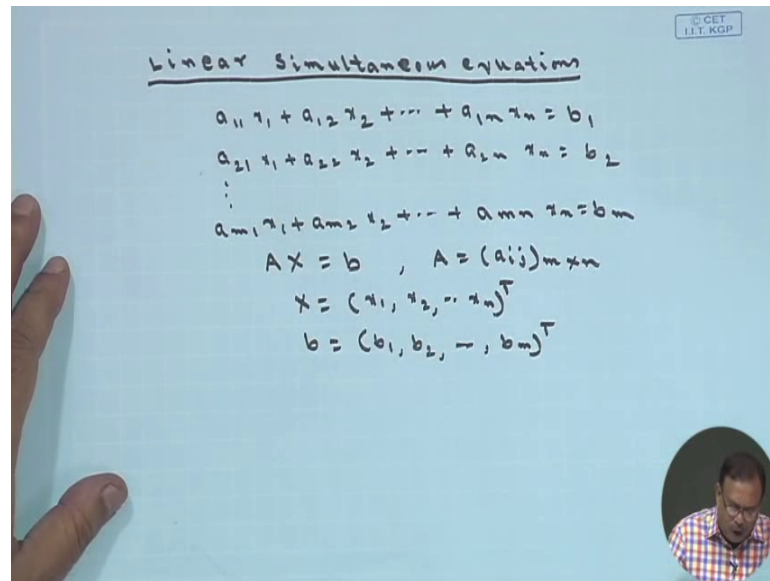 © CET
I.I.T. KGP
Linear Simultaneous equations
a₁₁ x₁ + a₁₂ x₂ + ... + a₁ₙ xₙ = b₁
a₂₁ x₁ + a₂₂ x₂ + ... + a₂ₙ xₙ = b₂
⋮
aₘ₁ x₁ + aₘ₂ x₂ + ... + aₘₙ xₙ = bₘ
AX = b , A = (aᵢⱼ)ₘₓₙ
X = (x₁, x₂, .. xₙ)ᵀ
b = (b₁, b₂, –, bₘ)ᵀ